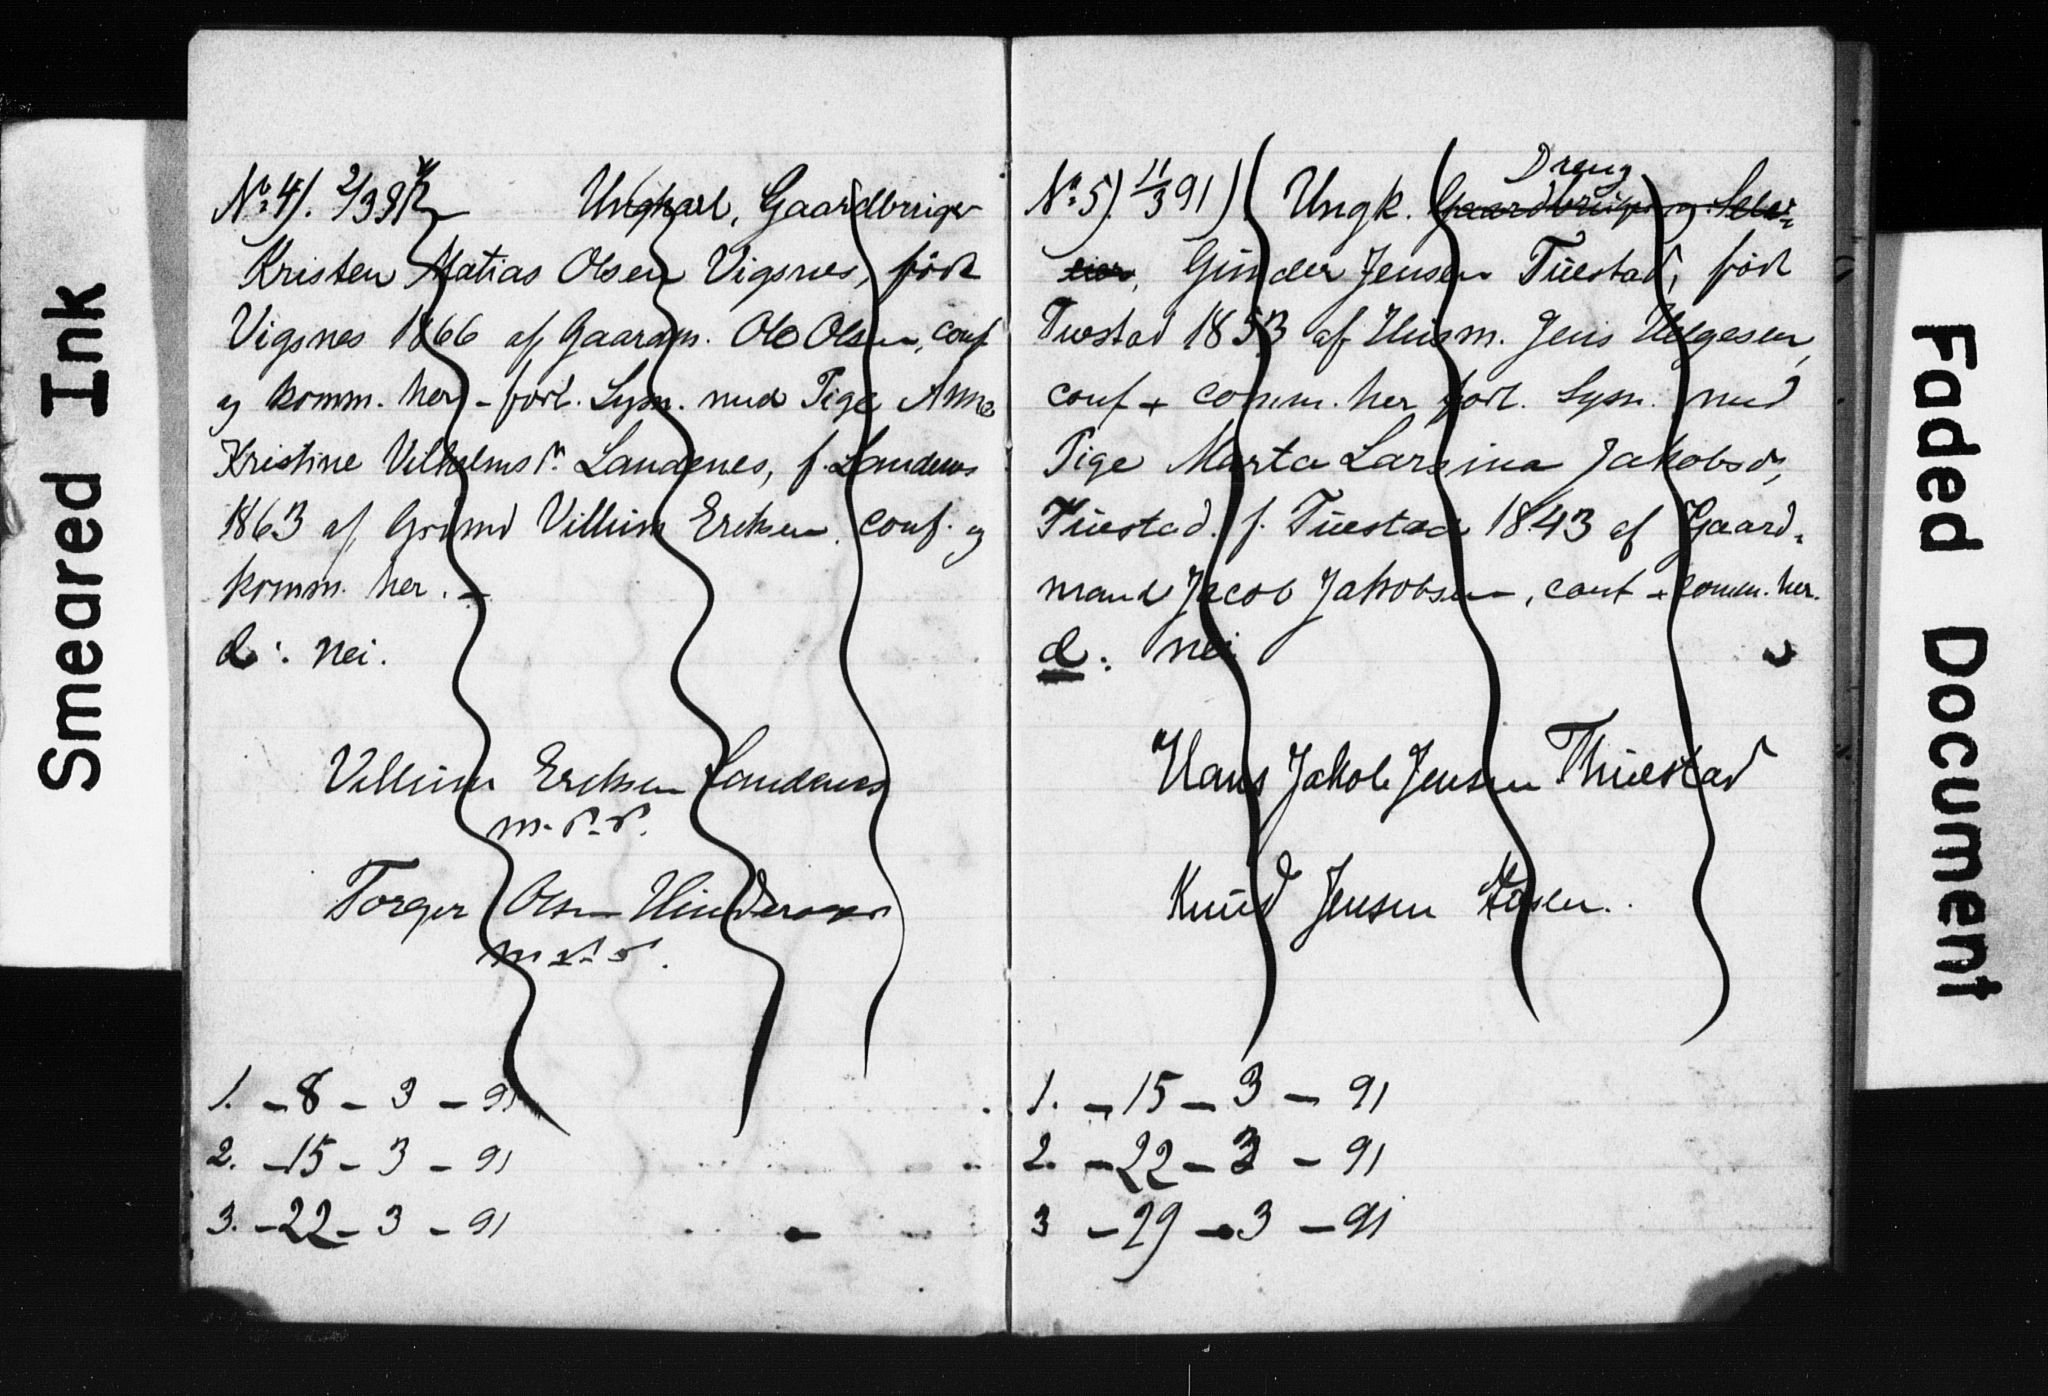 Smeared Ink
No 4). 2/3 91
Ungkarl, Gaardbruger
Kristen Matias Olsen Vigsnes, född
Vigsnes 1866 af Gaardm. Ole Olsen, conf
og komm. her - forl. Lysn. med Pige Anne
Kristine Vilhelmsd. Landenes, f. Landenes
1863 af Grdmd Villum Eriksen. conf. og
komm. her. -
d: nei.
Villum Eriksen Landenes
m. P. P.
Torger Olsen
m. P. P.
1. - 8 - 3 - 91
2. - 15 - 3 - 91
3. - 22 - 3 - 91
No 5). 11/3 91) Ungk. Dreng Gaardbruger og Selv-
eier, Gunder Jensen Tuestad, född
Tuestad 1853 af Husm. Jens Helgesen,
conf + comm. her forl. Lysn. med
Pige Marta Larsina Jakobsd,
Tuestad. f. Tuestad 1843 af Gaard-
mand Jacob Jakobsen, conf + comm. her.
d: nei
Hans Jakob Jensen Thuestad
Knud Jensen
1. - 15 - 3 - 91
2. - 22 - 3 - 91
3 - 29 - 3 - 91
Faded Document